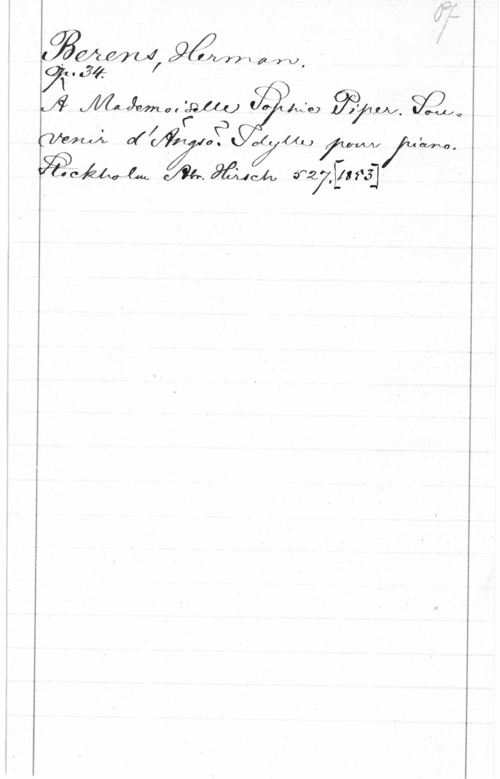 Pf
Berens, Herman.
Op. 34.
A Mademoiselle Sophie Piper. Sou-
venir d'Ångsö. Idylle pour piano.
Stockholm Abr. Hirsch 527. [1853]